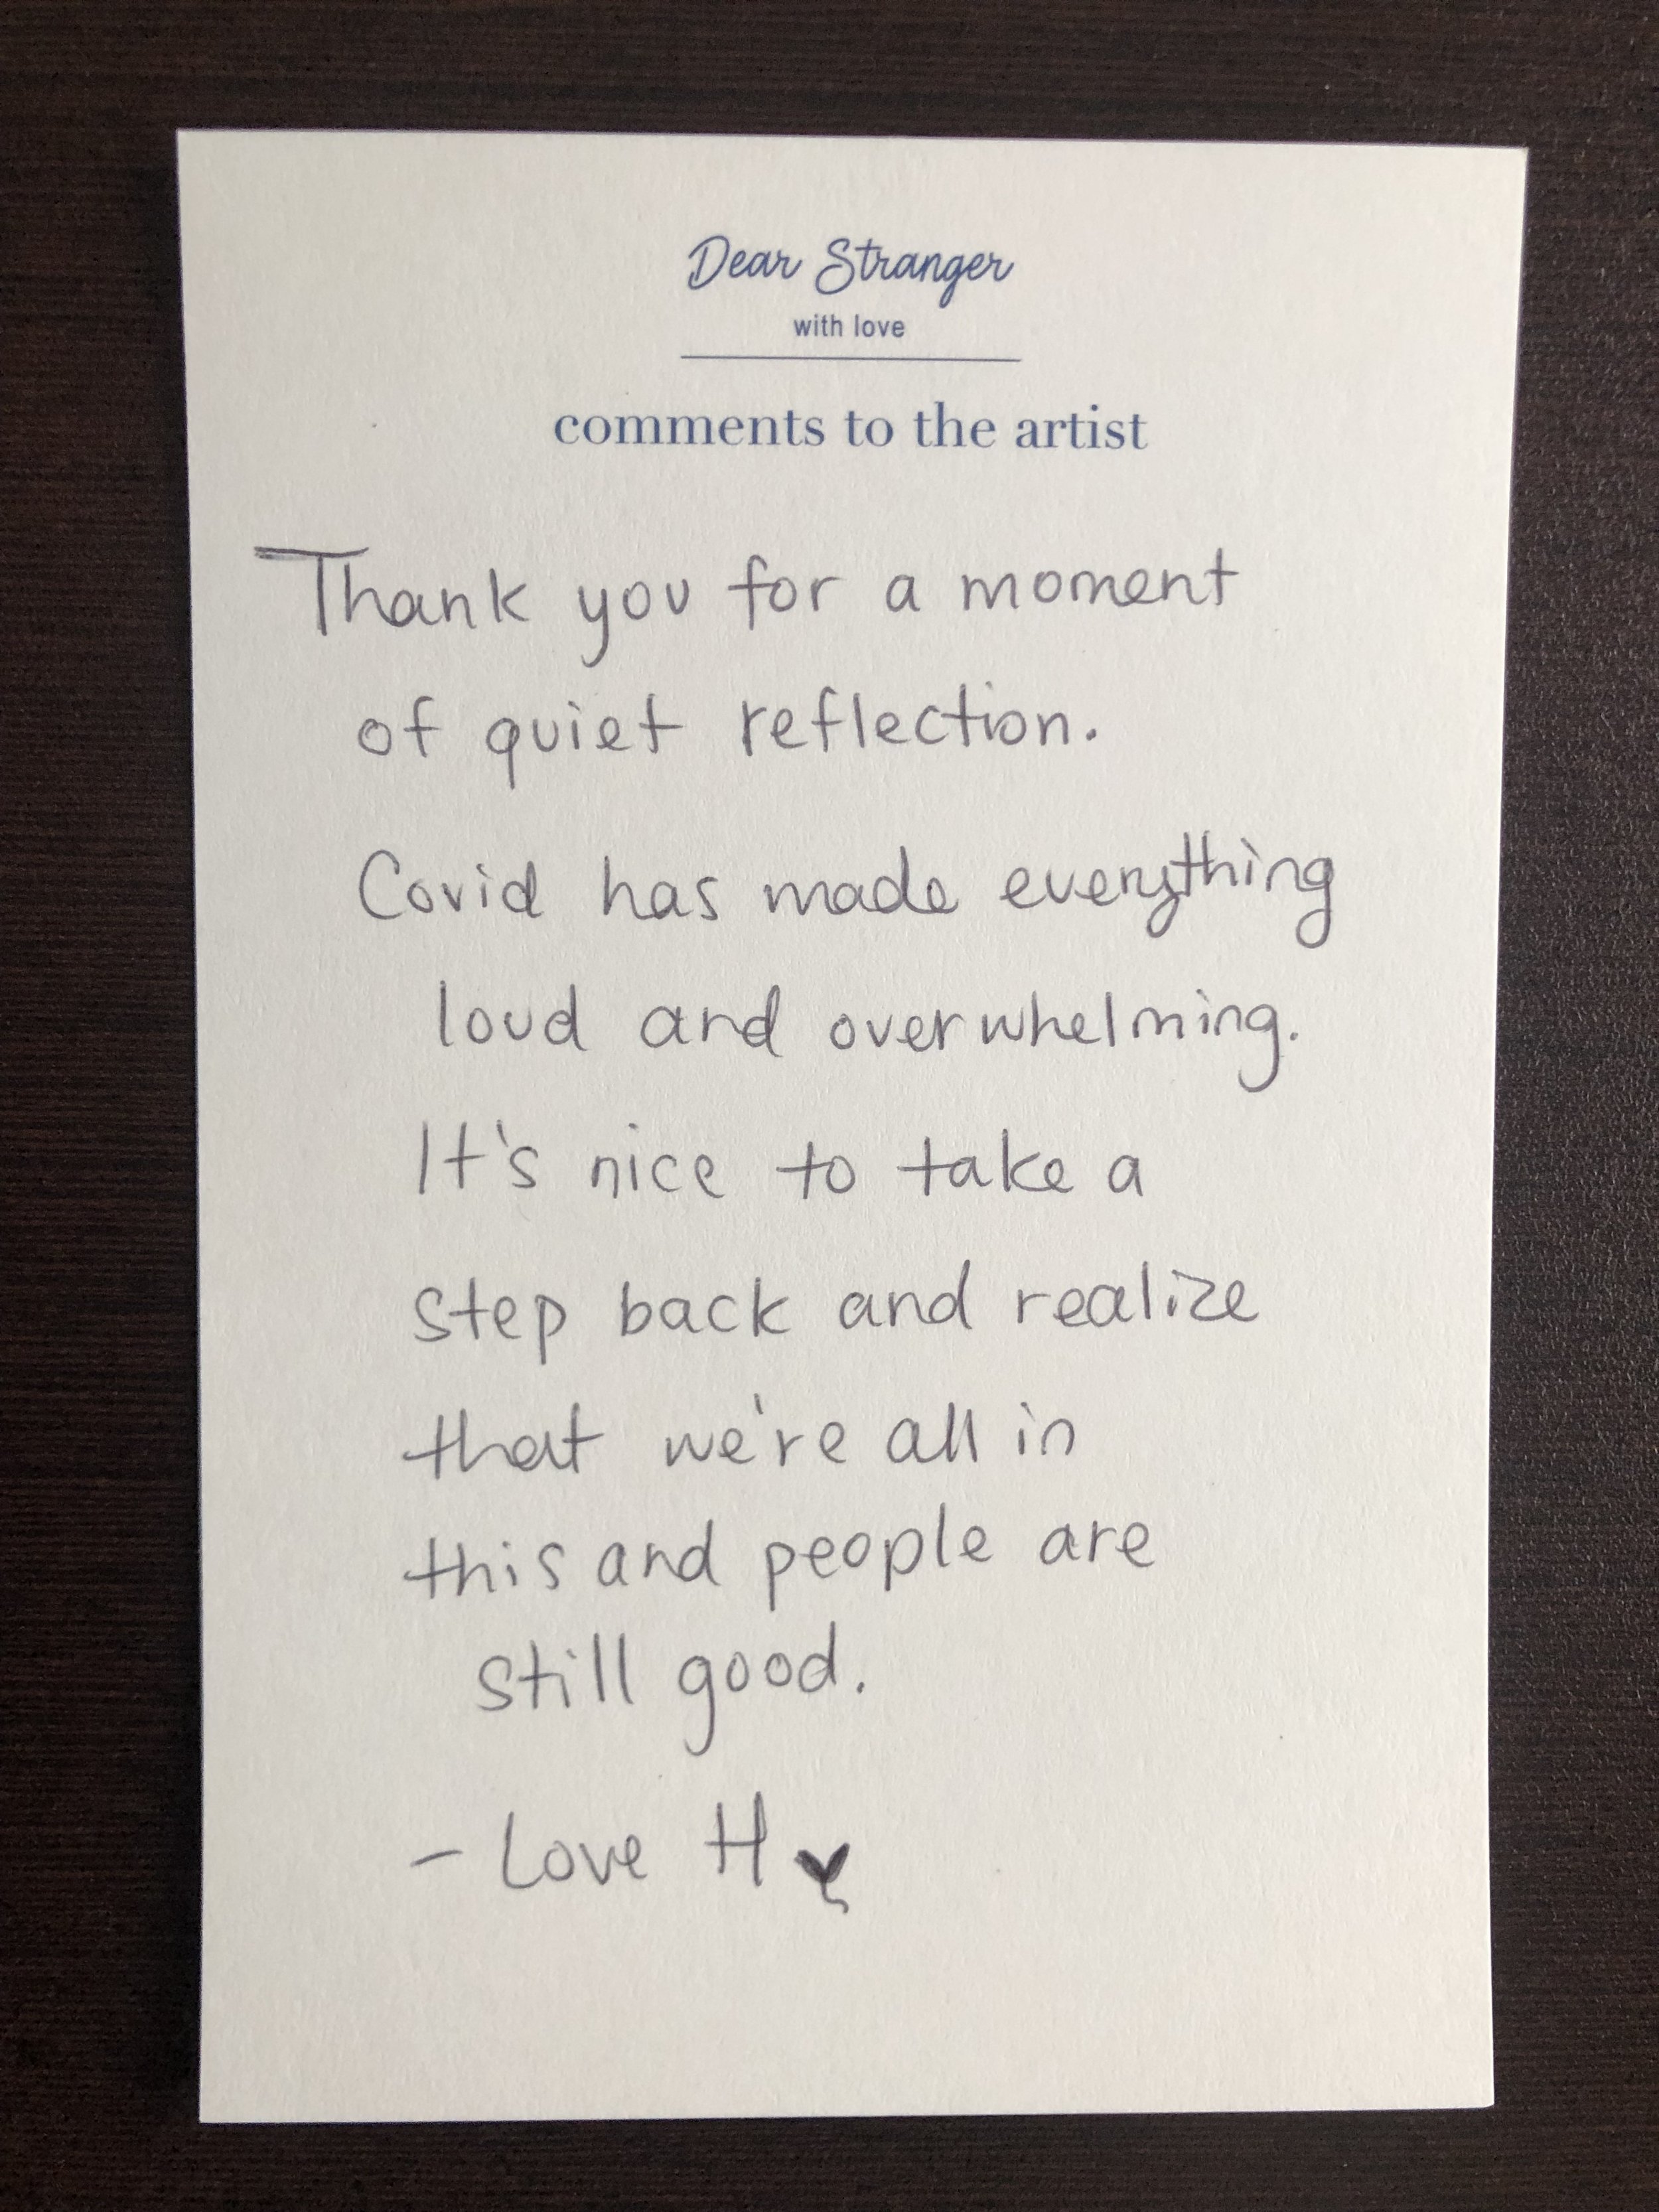 Dear Stranger
with love
comments to the artist
Thank you for a moment
of quiet reflection.
Covid has made everything
loud and overwhelming.
It's nice to take a
step back and realize
that we're all in
this and people are
still good.
- Love H